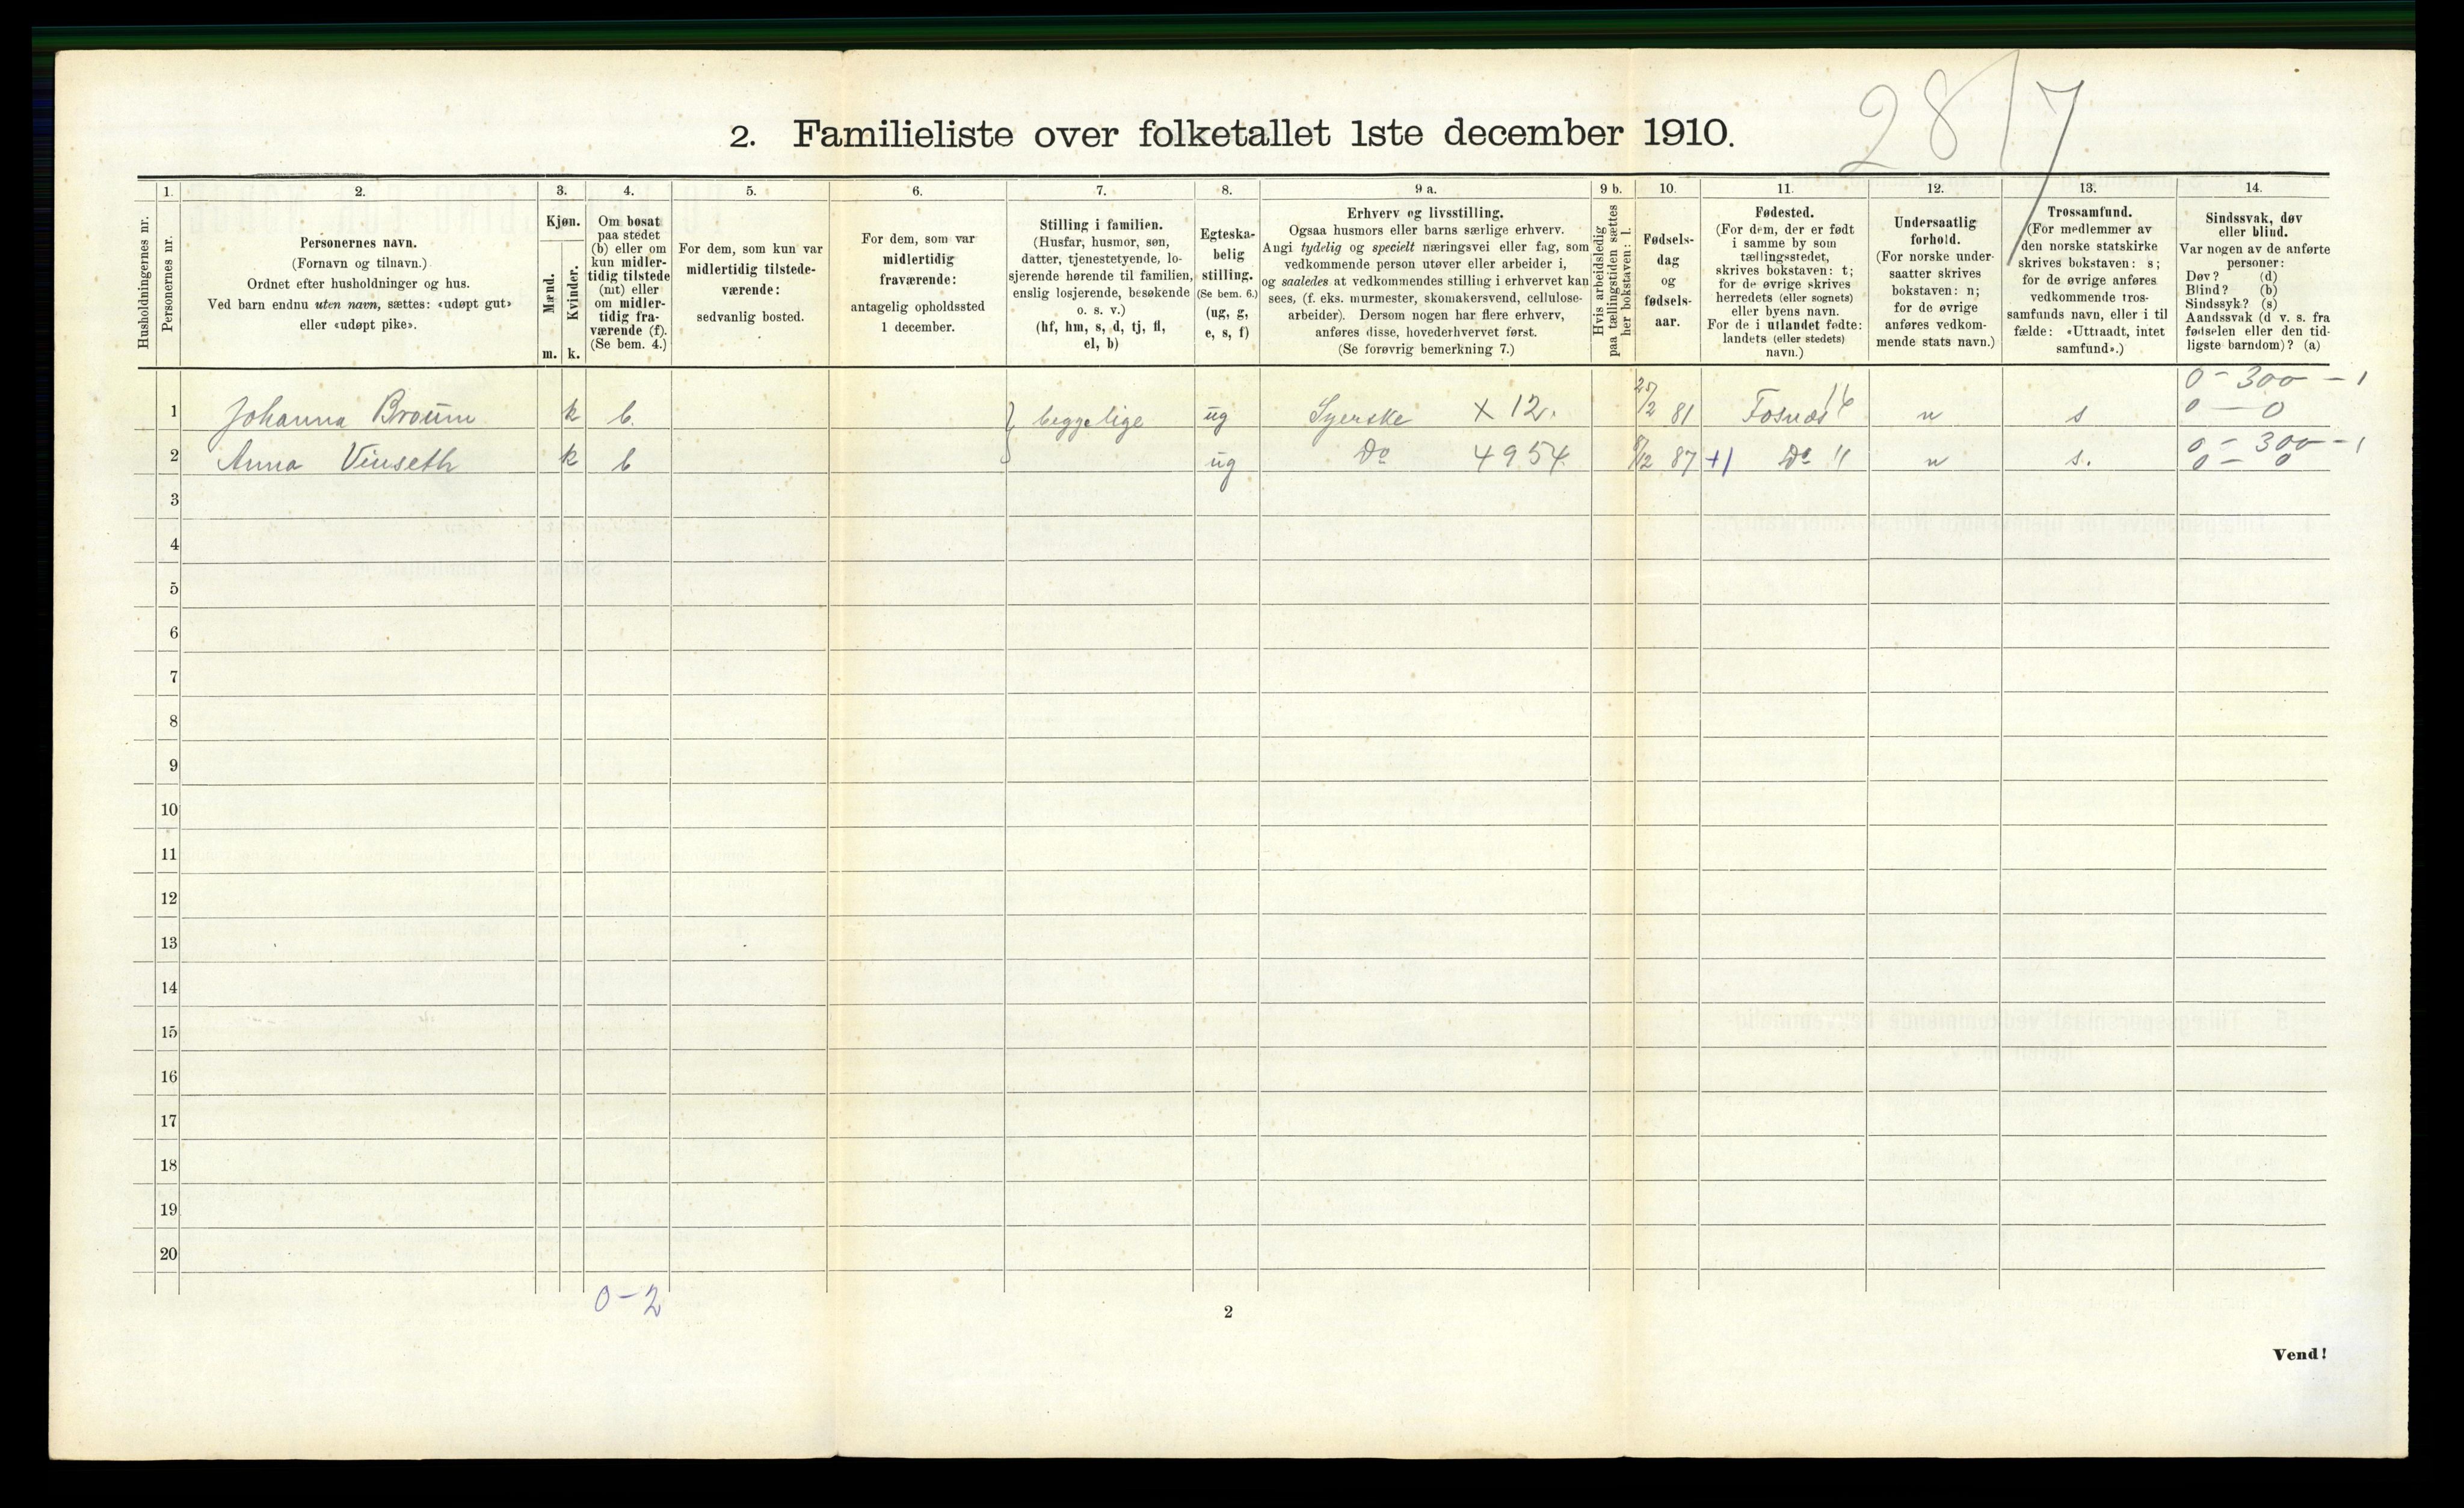 28/7
2. Familieliste over folketallet 1ste december 1910.
1. 2. 3. 4. 5. 6. 7. 8. 9 a. 9 b. 10. 11. 12. 13. 14.
Husholdningernes nr.
Personernes nr.
Personernes navn.
(Fornavn og tilnavn.)
Ordnet efter husholdninger og hus.
Ved barn endnu uten navn, sættes: «udøpt gut»
eller «udøpt pike».
Kjøn.
Mænd.
Kvinder.
m. k.
Om bosat
paa stedet
(b) eller om
kun midler-
tidig tilstede
(mt) eller
om midler-
tidig fra-
værende (f).
(Se bem. 4.)
For dem, som kun var
midlertidig tilstede-
værende:
sedvanlig bosted.
For dem, som var
midlertidig
fraværende:
antagelig opholdssted
1 december.
Stilling i familien.
(Husfar, husmor, søn,
datter, tjenestetyende, lo-
sjerende hørende til familien,
enslig losjerende, besøkende
o. s. v.)
(hf, hm, s, d, tj, fl,
el, b)
Egteska-
belig
stilling.
(Se bem. 6.)
(ug, g,
e, s, f)
Erhverv og livsstilling.
Ogsaa husmors eller barns særlige erhverv.
Angi tydelig og specielt næringsvei eller fag, som
vedkommende person utøver eller arbeider i,
og saaledes at vedkommendes stilling i erhvervet kan
sees, (f. eks. murmester, skomakersvend, cellulose-
arbeider). Dersom nogen har flere erhverv,
anføres disse, hovederhvervet først.
(Se forøvrig bemerkning 7.)
Hvis arbeidsledig
paa tællingstiden sættes
her bokstaven: l.
Fødsels-
dag
og
fødsels-
aar.
Fødested.
(For dem, der er født
i samme by som
tællingsstedet,
skrives bokstaven: t;
for de øvrige skrives
herredets (eller sognets)
eller byens navn.
For de i utlandet fødte:
landets (eller stedets)
navn.)
Undersaatlig
forhold.
(For norske under-
saatter skrives
bokstaven: n;
for de øvrige
anføres vedkom-
mende stats navn.)
Trossamfund.
(For medlemmer av
den norske statskirke
skrives bokstaven: s;
for de øvrige anføres
vedkommende tros-
samfunds navn, eller i til
fælde: «Uttraadt, intet
samfund».)
Sindssvak, døv
eller blind.
Var nogen av de anførte
personer:
Døv? (d)
Blind? (b)
Sindssyk? (s)
Aandssvak (d v. s. fra
fødselen eller den tid-
ligste barndom)? (a)
0 - 300 - 1
1 Johanna Broum k b. } beggelige ug Syerske X 12. 25/2 81 Fosnæs n s 0 - 0
0 - 300 - 1
2 Anna Vinseth k b ug Do 4954 8/12 87 +1 Do " n s. 0 - 0
3
4
5
6
7
8
9
10
11
12
13
14
15
16
17
18
19
20
0-2
2
Vend!